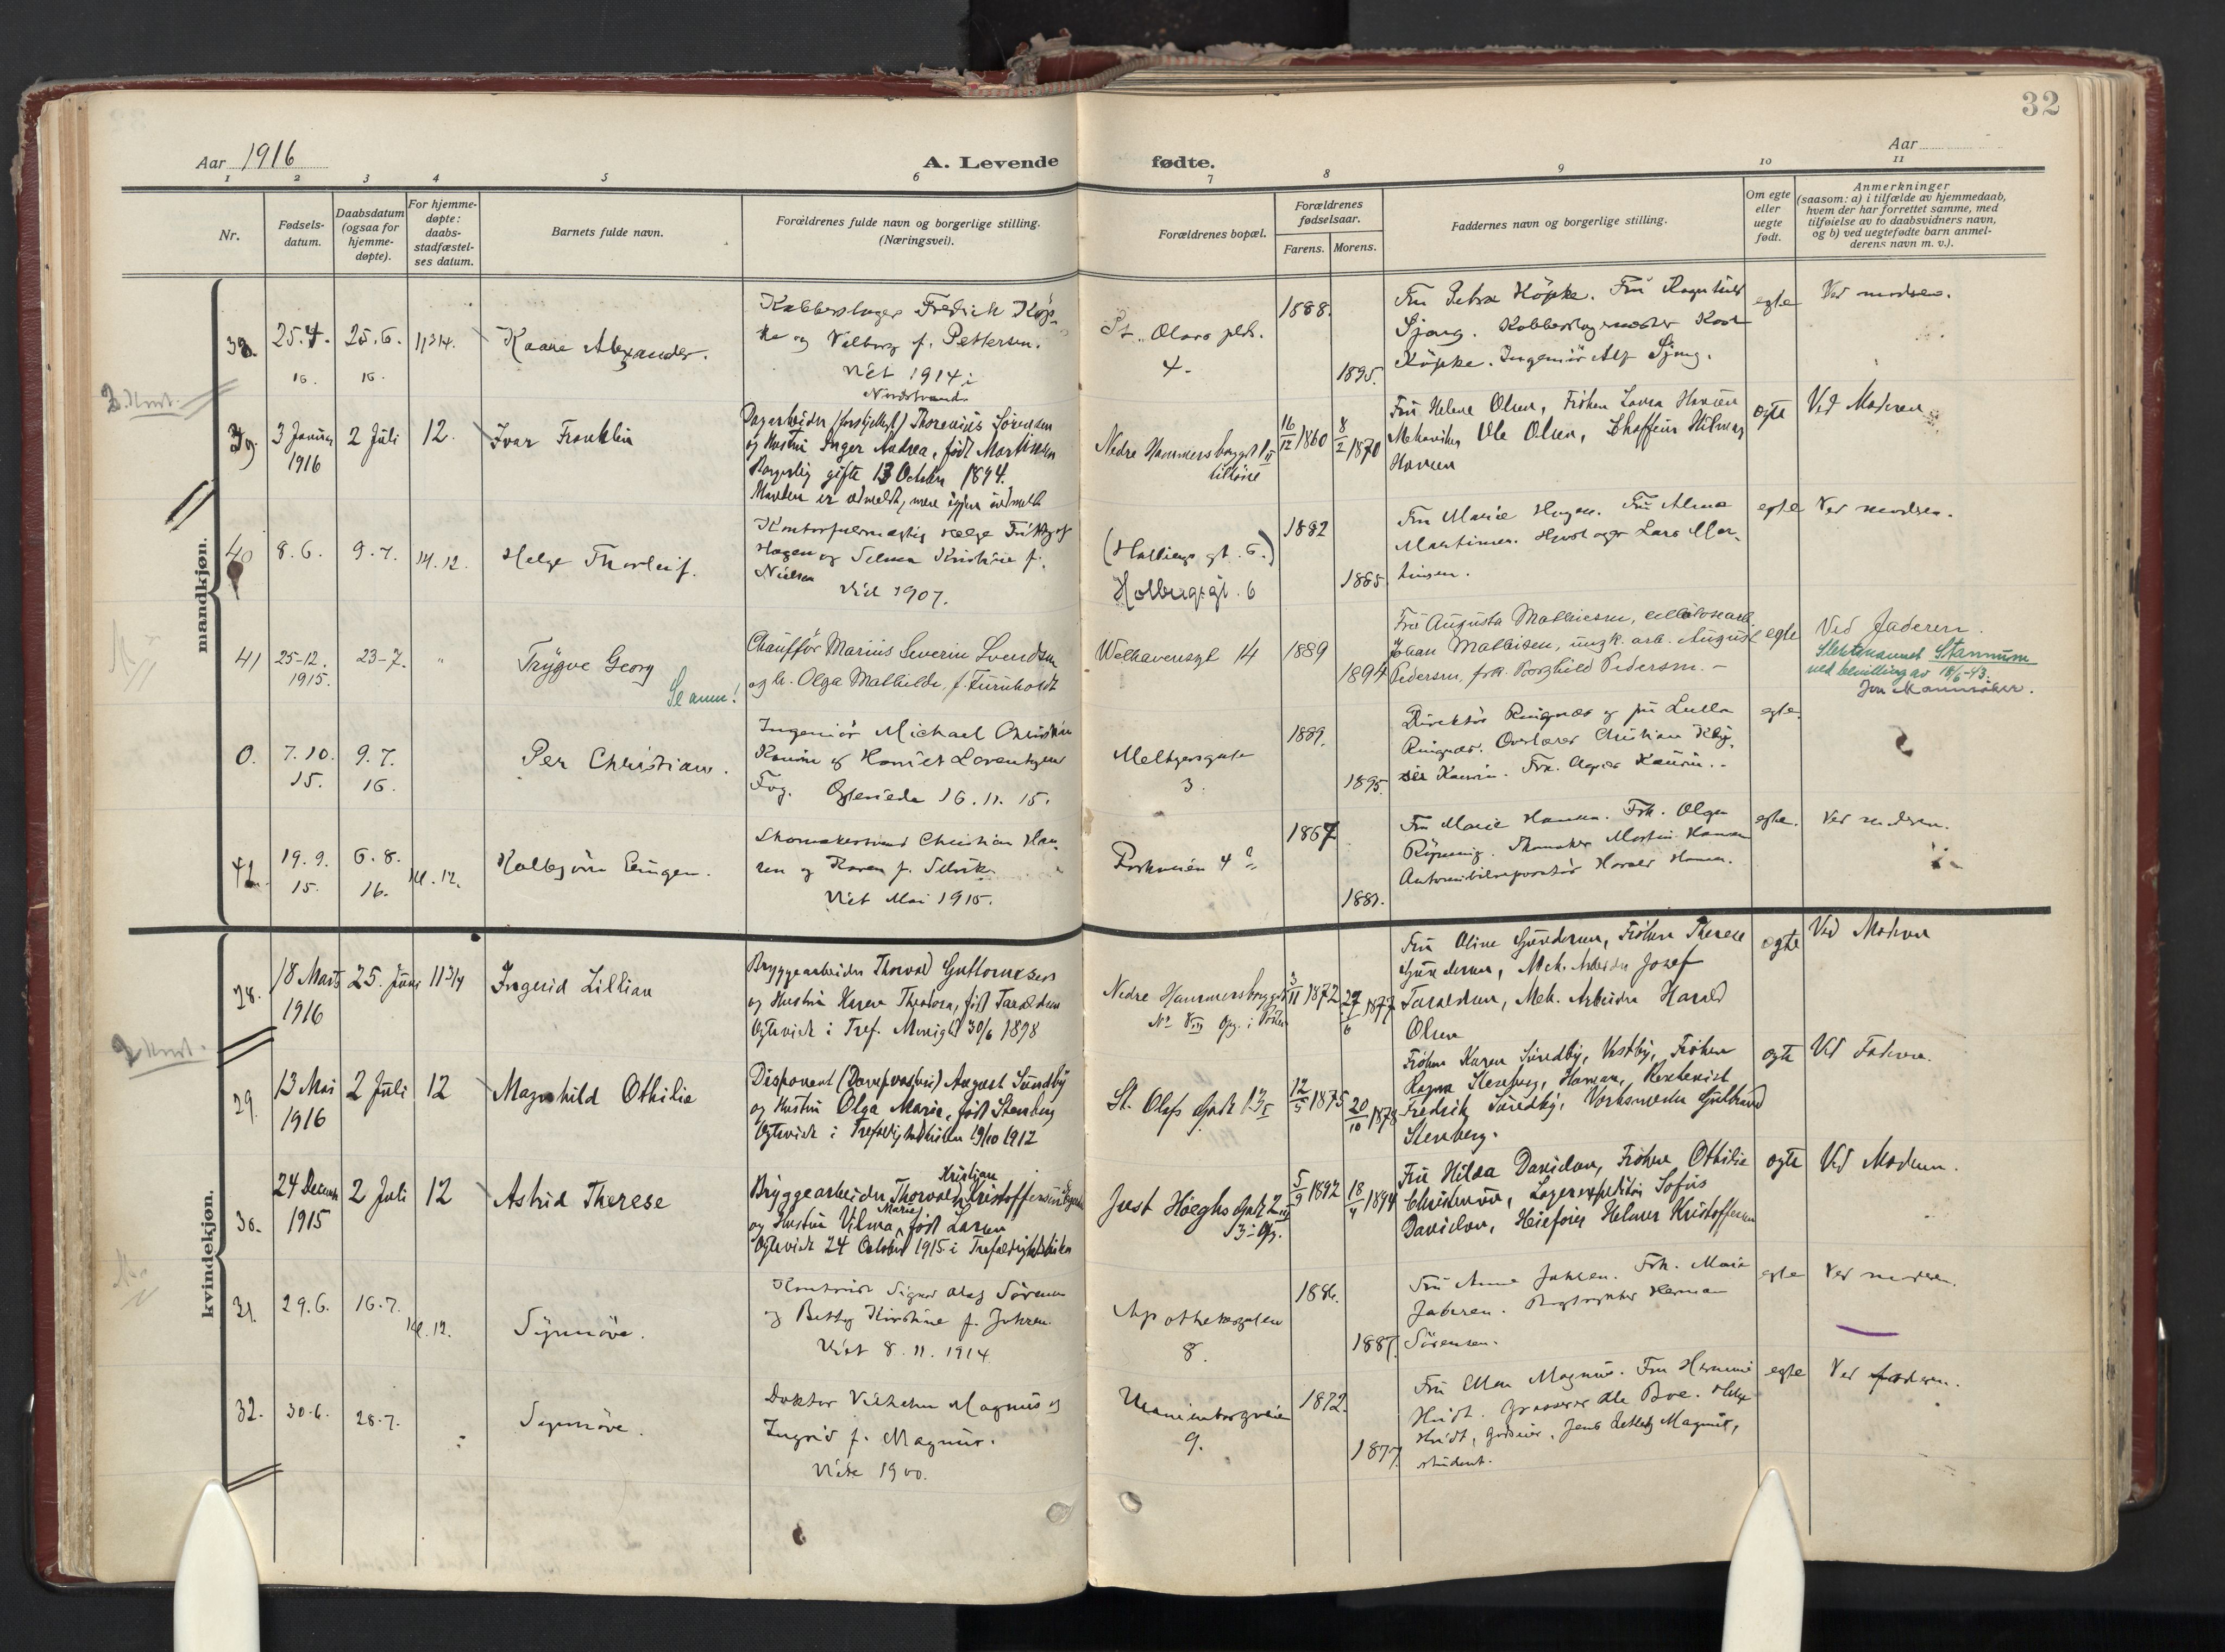 32
Aar 1916
A. Levende
fødte.
Aar
1 2 3 4 5 6 7 8 9 10 11
Nr.
Fødsels-
datum.
Daabsdatum
(ogsaa for
hjemme-
døpte).
For hjemme-
døpte:
daabs-
stadfæstel-
ses datum.
Barnets fulde navn.
Forældrenes fulde navn og borgerlige stilling.
(Næringsvei).
Forældrenes bopæl.
Forældrenes
fødselsaar.
Farens. Morens.
Faddernes navn og borgerlige stilling.
Om egte
eller
uegte
født.
Anmerkninger
(saasom: a) i tilfælde av hjemmedaab,
hvem der har forrettet samme, med
tilføielse av to daabsvidners navn,
og b) ved uegtefødte barn anmel-
derens navn m. v.).
mandkjøn.
25.4. 25.6.
16. 16.
Kaare Alexander.
Kobberslager Fredrich Köp-
ke og Valborg f. Pettersen.
Viet 1914 i
Nordstrand
St. Olavs plds.
4.
1888.
1895.
Fru Petra Köpke. Fru Ragnhild
Sjong. Kobberslagermester Karl
Köpke. Ingeniør Alf Sjong.
egte
Ved moderen.
39. 3 Januar 2 Juli 12.
1916
Ivar Franklin
Dagarbeider (forskjelligt) Thorenius Sørensen
og Hustru Inger Andrea, født Martinsen
Borgerlig gifte 13 October 1894.
Nedre Hammersborggt
16/12 1860 8/2 1870
Fru Helene Olsen, Frøken Laura Hansen
Mekaniker Ole Olsen, Chaffeur Hilmar
Hansen
egte
Ved Moderen
40 8.6. 9.7. 14.12.
Helge Thorleif.
Kontorfuldmægtig Helge
Hagen og Selma Kristine f.
Nielsen
Viet 1907.
Holbergsgt. 6
1882
1885.
Fru Marie Hagen. Fru Alma
Martinsen. Lars Mar-
tinsen.
egte
Ved moderen.
41 25-12. 23-7. "
1915.
Trygve Georg
Se anm!
Chauffør Marius Severin Svendsen
og h. Olga Mathilde, f. Furuholdt
Welhavensgt 14
1889
1894
Fru Augusta Mathiesen, cellulosearb.
Johan Mathisen, ungk. arb. August
Pedersen, frk. Borghild Pedersen. -
egte
Ved Faderen.
Slektsnavnet Stannum
ved bevilling av 18/6-43.
0. 7.10. 9.7.
15. 16.
Per Christian.
Ingeniør Michael Christian
Kaurin og Harriet Lovenkjær
Fog. Gjerde 16.11.15.
Meltzersgate
3.
1889.
1895.
Direktør Ringnes og fru Lulla
Ringnes. Overlærer Christian
Kaurin. Frk. Agnes Kaurin.
egte.
42. 19.9. 6.8.
15. 16.
Kolbjørn
Skomakersvend Christian Han-
sen og Karen f.
Viet Mai 1915.
Parkveien 4
1867
1881.
Fru Marie Hansen. Frk. Olga
Skomaker Martin Hansen
Automobilreparatør Harald Hansen.
egte.
Ved moderen.
kvindekjøn.
28. 18 Marts 25. Juni 11 3/4
1916
Ingrid Lillian
Bryggearbeider Thorvald Guttormsen
og Hustru Karen Theodora, født Taraldsen
Egteviet i Tref. Menighet 30/6 1898
Nedre Hammersborggt
3/11 1872 27/6 1877
Fru Oline Gundersen, Frøken Therese
Gundersen, Mek. Arbeider Josef
Taraldsen, Mek. Arbeider Harald
Olsen
egte
Ved Moderen
29. 13 Mai 2 Juli 12
1916
Magnhild Othilie
Disponent (Dampvaskeri) August Sundby
og Hustru Olga Marie, født Stenberg
Egteviet i Trefoldighetskirken 19/10 1912
St. Olafs Gade 13 I
12/5 1875 20/10 1878
Frøken Karen Sundby, Vestby, Frøken
Ragna Stenberg, Hamar,
Fredrik Sundby, Verksmester Gulbrand
Stenberg.
egte
Ved Faderen.
30. 24 Decemb 2 Juli 12
1915
Astrid Therese
Kristian
Bryggearbeider Thorvald Kristoffersen
Marie
og Hustru Vilma, født Larsen
Egteviet 24 October 1915 i Trefoldighetskirken
Just Høeghs Gade 2
3 Opg.
5/9 1892 18/4 1894
Fru Hilda Davidsen, Frøken Othilie
Christensen, Lagerexpeditør Sofus
Davidsen, Heisfører Helmer Kristoffersen
egte
Ved Moderen.
31. 29.6. 16.7.
14.12.
Synnöve.
Kontorist Sigurd Olaf Sörensen
og Betty Kirstine f. Johnsen
Viet 8.11.1914
Apothekergaten
8.
1886.
1887.
Fru Anna Johnsen. Frk. Marie
Johnsen. Herman
Sörensen.
egte
Ved moderen.
32. 30.6. 28.7.
Synnöve.
Doktor Vilhelm Magnus og
Ingrid f. Magnus.
Viet 1900.
Uranienborgveien
9.
1872.
1877.
Fru Ellen Magnus. Fru Hermine
Hvidt. Grosserer Ole Bve. Helge
Hvidt, Godseier. Jens Detlef Magnus,
student.
egte
Ved faderen.